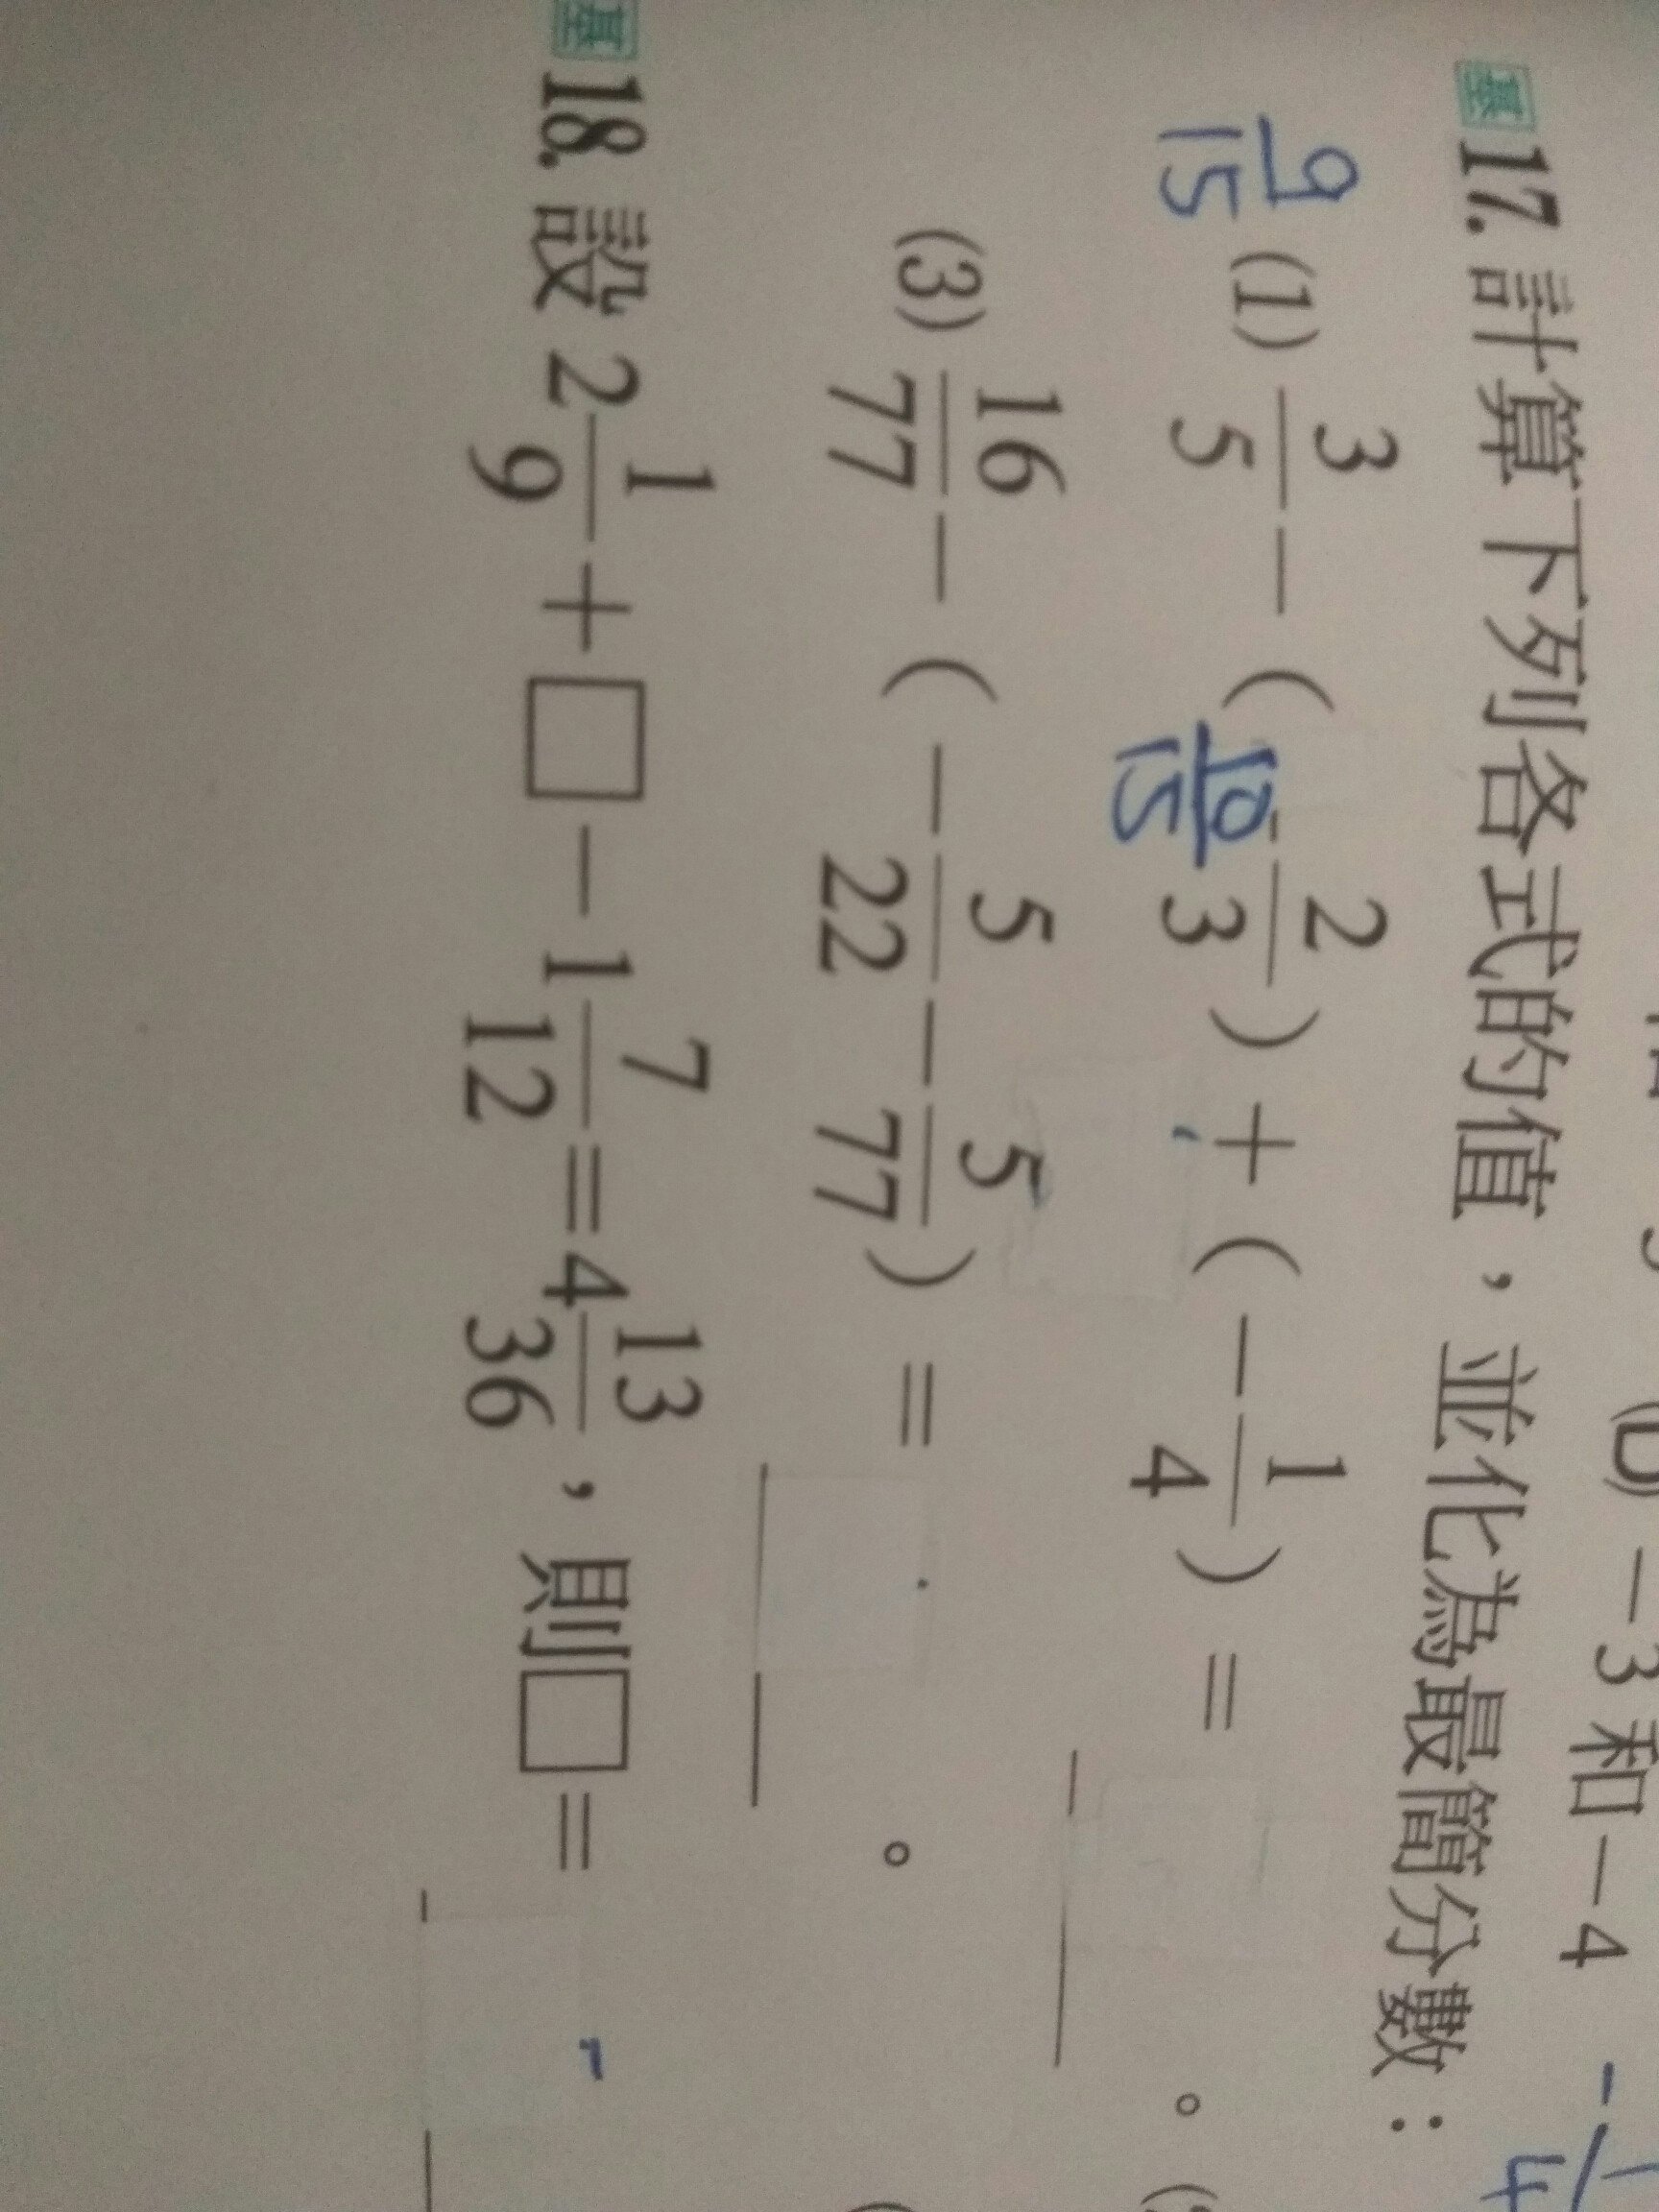 (D) －3 和 －4
-1/4
基 17. 計算下列各式的值，並化為最簡分數：
9/15 (1) 3/5 － ( 10/15 － 2/3 ) ＋ ( － 1/4 ) ＝ ＿＿＿。
(3) 16/77 － ( － 5/22 － 5/77 ) ＝ ＿＿＿。
基 18. 設 2 1/9 ＋ □ － 1 7/12 ＝ 4 13/36，則 □ ＝ ＿＿＿